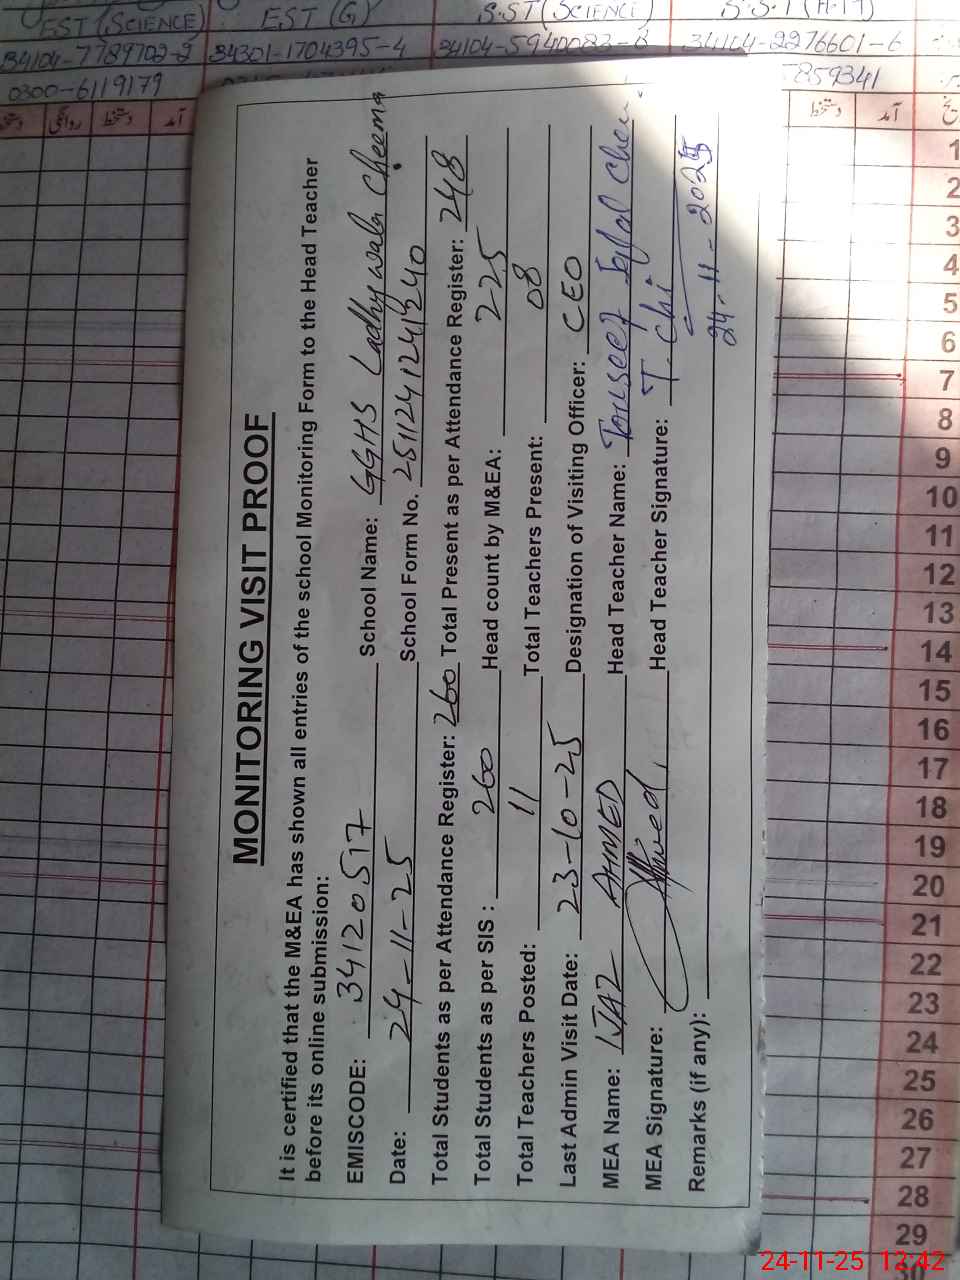 EST (SCIENCE) EST (G) S.ST (SCIENCE)
34104-7789702-2 34301-1704395-4 34104-5940083-8 34104-2276601-6
0300-6119179 859341
دستخط روانگی دستخط آمد دستخط آمد
MONITORING VISIT PROOF
It is certified that the M&EA has shown all entries of the school Monitoring Form to the Head Teacher
before its online submission:
EMISCODE: 34120517 School Name: GGHS Ladhywala Cheema
Date: 24-11-25 School Form No. 251124124141240
Total Students as per Attendance Register: 260 Total Present as per Attendance Register: 248
Total Students as per SIS : 260 Head count by M&EA: 225
Total Teachers Posted: 11 Total Teachers Present: 08
Last Admin Visit Date: 23-10-25 Designation of Visiting Officer: CEO
MEA Name: IJAZ AHMED Head Teacher Name:
MEA Signature: Ahmed Head Teacher Signature:
Remarks (if any): 24-11-2025
1
2
3
4
5
6
7
8
9
10
11
12
13
14
15
16
17
18
19
20
21
22
23
24
25
26
27
28
29
24-11-25 12:42